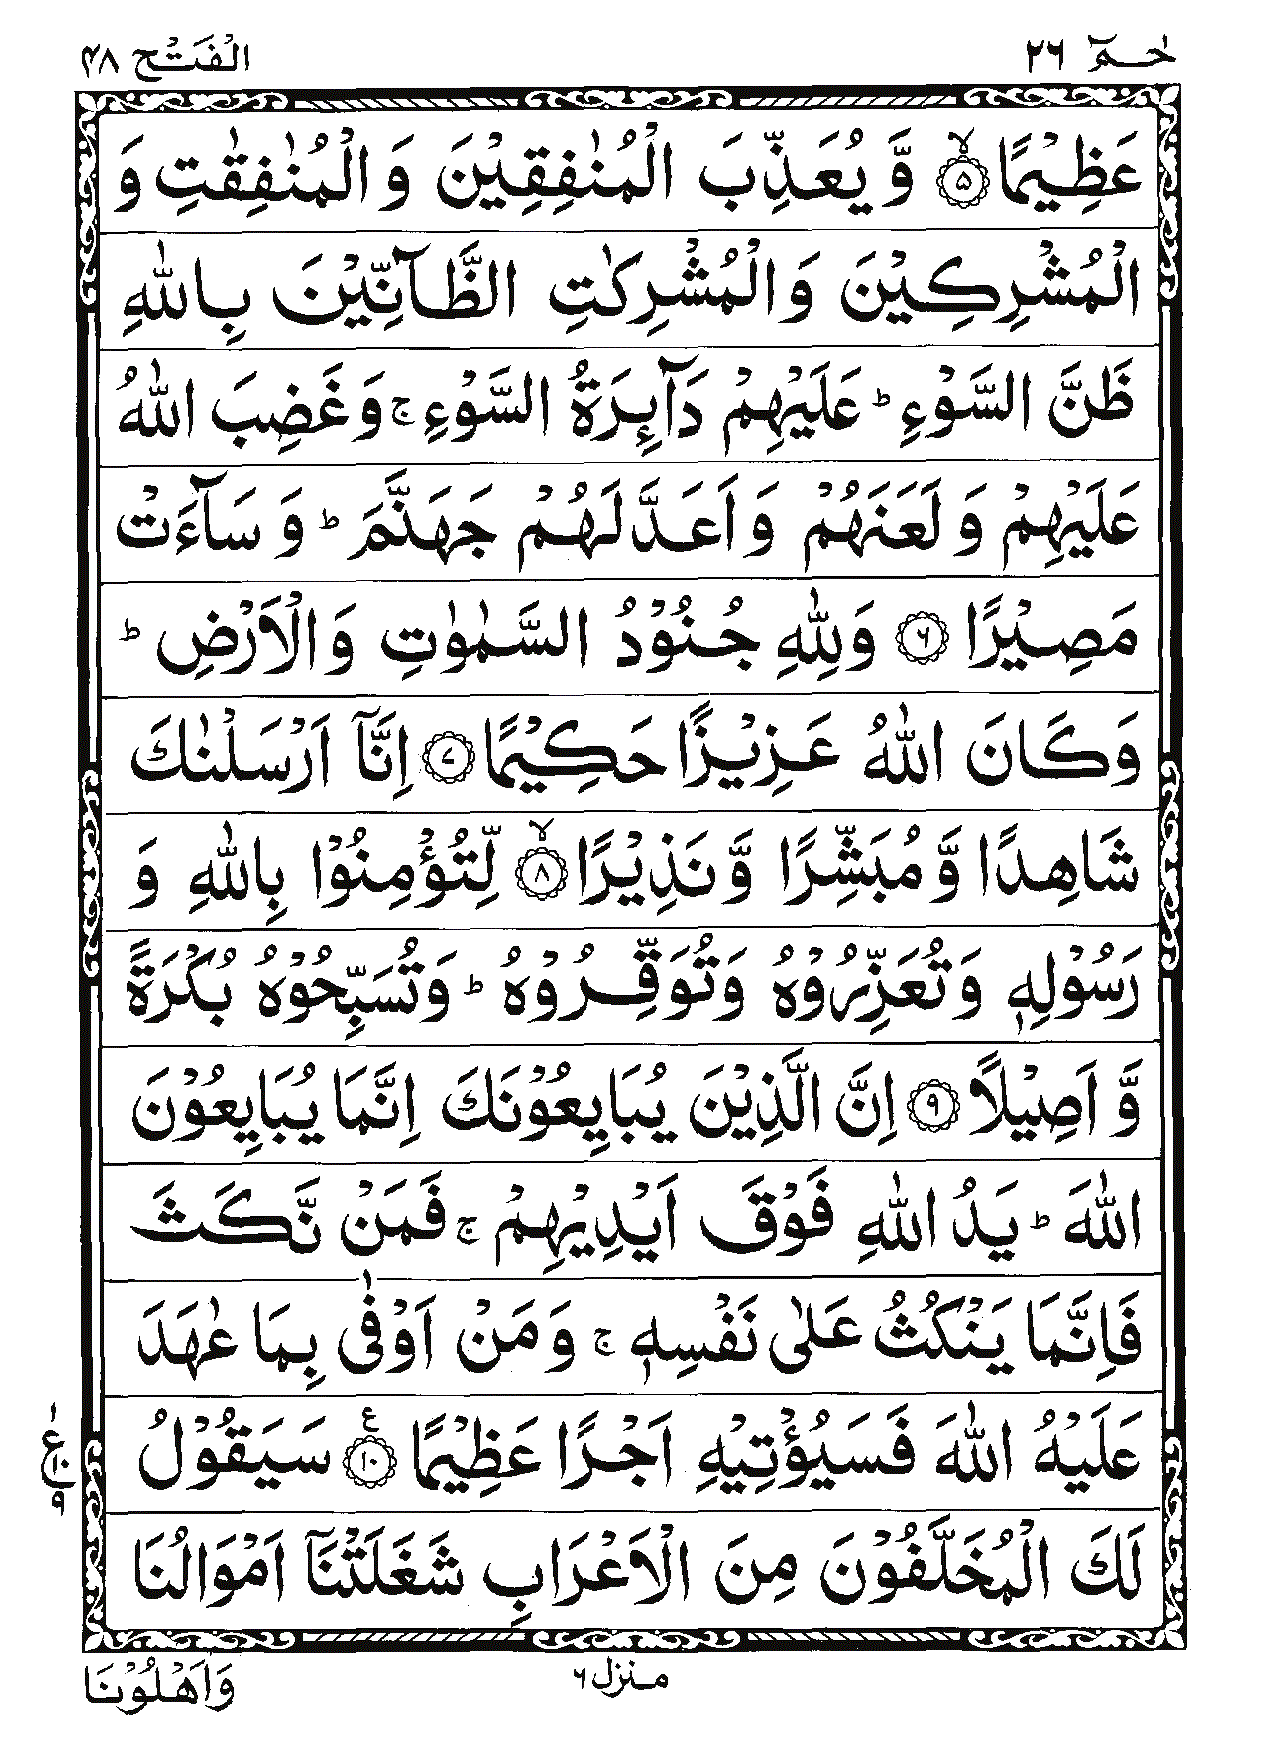 حٰـمٓ ٢٦ الْفَتْح ٤٨
عَظِيْمًا ۙ‏﴿۵﴾ وَّ يُعَذِّبَ الْمُنٰفِقِيْنَ وَ الْمُنٰفِقٰتِ وَ
الْمُشْرِكِيْنَ وَ الْمُشْرِكٰتِ الظَّآنِّيْنَ بِاللّٰهِ
ظَنَّ السَّوْءِ ؕ عَلَيْهِمْ دَآئِرَةُ السَّوْءِ ۚ وَ غَضِبَ اللّٰهُ
عَلَيْهِمْ وَ لَعَنَهُمْ وَ اَعَدَّ لَهُمْ جَهَنَّمَ ؕ وَ سَآءَتْ
مَصِيْرًا ﴿۶﴾ وَلِلّٰهِ جُنُوْدُ السَّمٰوٰتِ وَ الْاَرْضِ ؕ
وَ كَانَ اللّٰهُ عَزِيْزًا حَكِيْمًا ﴿۷﴾ اِنَّاۤ اَرْسَلْنٰكَ
شَاهِدًا وَّ مُبَشِّرًا وَّ نَذِيْرًا ۙ‏﴿۸﴾ لِّتُؤْمِنُوْا بِاللّٰهِ وَ
رَسُوْلِهٖ وَ تُعَزِّرُوْهُ وَ تُوَقِّرُوْهُ ؕ وَ تُسَبِّحُوْهُ بُكْرَةً
وَّ اَصِيْلًا ﴿۹﴾ اِنَّ الَّذِيْنَ يُبَايِعُوْنَكَ اِنَّمَا يُبَايِعُوْنَ
اللّٰهَ ؕ يَدُ اللّٰهِ فَوْقَ اَيْدِيْهِمْ ۚ فَمَنْ نَّكَثَ
فَاِنَّمَا يَنْكُثُ عَلٰى نَفْسِهٖ ۚ وَ مَنْ اَوْفٰى بِمَا عٰهَدَ
عَلَيْهُ اللّٰهَ فَسَيُؤْتِيْهِ اَجْرًا عَظِيْمًا ﴿۱۰﴾ ع سَيَقُوْلُ
١ ع ١٠ ٩
لَكَ الْمُخَلَّفُوْنَ مِنَ الْاَعْرَابِ شَغَلَتْنَاۤ اَمْوَالُنَا
منزل ٦
وَاَهْلُوْنَا